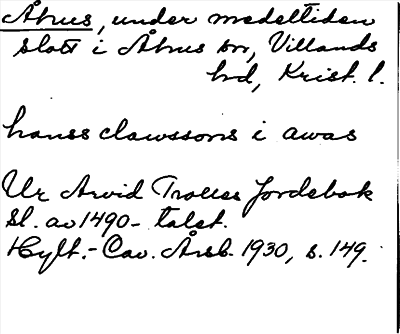 Åhus, under medeltiden
slott i Åhus sn, Villands
hd, Krist. l.
hanss clawssons i awas
Ur Arvid Trolles Jordebok
Sl. av 1490-talet.
Hylt.-Cav. Årsb. 1930, s. 149.